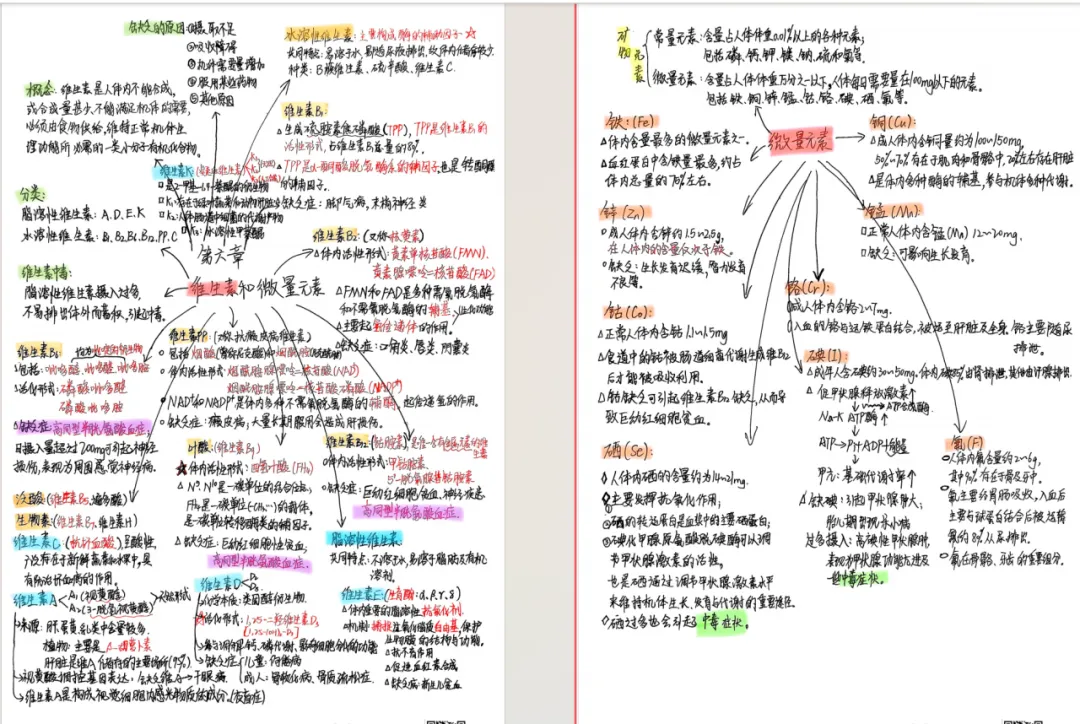 缺乏的原因:①摄取不足
②吸收障碍
③机体需要量增加
④服用某些药物
⑤其他原因
概念:维生素是人体内不能合成,
或合成量甚少,不能满足机体的需要,
必须由食物供给,维持正常机体生
理功能所必需的一类小分子有机化合物。
分类:
脂溶性维生素:A.D.E.K
水溶性维生素:B₁.B₂.B₆.B₁₂.PP.C
维生素中毒:
脂溶性维生素摄入过多,
不易排出体外而蓄积,引起中毒。
水溶性维生素:主要构成酶的辅助因子☆
共同特点:易溶于水,易随尿液排出,故体内储存较少
种类:B族维生素、硫辛酸、维生素C.
维生素B₁
△生成硫胺素焦磷酸(TPP),TPP是维生素B₁的
活性形式,占维生素B₁总量的80%.
△TPP是α-酮酸脱氢酶系的辅因子,也是转酮醇酶
的辅因子.
△缺乏症:脚气病,末梢神经炎
维生素K
第六章
维生素和微量元素
维生素B₂(又称核黄素)
△体内活性形式:黄素单核苷酸(FMN)、
黄素腺嘌呤二核苷酸(FAD)
△FMN和FAD是多种需氧脱氢酶
和不需氧脱氢酶的辅基,
主要起氢传递体的作用.
△缺乏症:口角炎、唇炎、阴囊炎
维生素PP(又称抗糙皮病维生素)
○包括烟酸
○体内活性形式:烟酰胺腺嘌呤二核苷酸(NAD⁺)
烟酰胺腺嘌呤二核苷酸磷酸(NADP⁺)
○NAD⁺和NADP⁺是体内多种不需氧脱氢酶的辅酶,起传递氢的作用.
○缺乏症:癞皮病;大量长期服用会造成肝损伤.
维生素B₆:
△包括:吡哆醇、吡哆醛、吡哆胺
△活化形式:磷酸吡哆醛
磷酸吡哆胺
△缺乏症:高同型半胱氨酸血症;
日摄入量超过200mg可引起神经
损伤,表现为周围感觉神经病.
叶酸:(维生素B₉)
☆体内活化形式:四氢叶酸(FH₄)
△N⁵.N¹⁰是一碳单位的结合位点,
FH₄是一碳单位的载体,
△缺乏症:巨幼红细胞性贫血,
高同型半胱氨酸血症.
维生素B₁₂
○体内活性形式:甲钴胺素、
5'-脱氧腺苷钴胺素
○缺乏症:巨幼红细胞贫血、神经疾患
高同型半胱氨酸血症.
泛酸:(维生素B₅,遍多酸)
生物素:(维生素B₇.维生素H)
维生素C:(抗坏血酸),呈酸性,
广泛存在于新鲜蔬菜和水果中,具
有防治坏血病的作用.
脂溶性维生素:
共同特点:不溶于水,易溶于脂肪及有机
溶剂.
维生素A
A₁(视黄醇)
A₂(3-脱氢视黄醇)
→来源:肝、蛋黄、乳类中含量较多
植物:主要是β-胡萝卜素
→维生素A是构成视觉细胞内感光物质的成分.
维生素D
D₂
D₃
→化学本质:类固醇衍生物
→活化形式:1,25-二羟维生素D₃
[1,25-(OH)₂-D₃]
→缺乏症
儿童:佝偻病
成人:骨软化病、骨质疏松症.
维生素E:(生育酚:α.β.γ.δ)
△体内重要的脂溶性抗氧化剂.
△机制:捕捉过氧化脂质自由基,保护
生物膜的结构与功能.
△抗不育作用
△促进血红素合成
△缺乏病:新生儿贫血
矿物元素
常量元素:含量占人体体重0.01%以上的各种元素;
包括磷、钙、钾、镁、钠、硫和氯等.
微量元素:含量占人体体重万分之一以下,人体每日需要量在100mg以下的元素.
包括铁、铜、锌、锰、钴、铬、碘、硒、氟等.
微量元素
铁:(Fe)
△体内含量最多的微量元素之一.
△血红蛋白中含铁量最多,约占
体内总量的70%左右.
铜(Cu)
△成人体内含铜量约为100~150mg,
50%~70%存在于肌肉和骨骼中,20%左右存在肝脏
△是体内多种酶的辅基,参与机体多种代谢.
锌(Zn)
○成人体内含锌约1.5~2.5g,
在人体内的含量仅次于铁.
○缺乏:生长发育迟缓,智力发育
不良等.
锰(Mn)
□正常人体内含锰(Mn)12~20mg.
□缺乏:可影响生长发育.
铬(Cr):
钴(Co)
△正常人体内含钴1.1~1.5mg
△食道中的钴被肠道细菌代谢生成维B₁₂
后才能被吸收利用.
△钴缺乏可引起维生素B₁₂缺乏,从而导
致巨幼红细胞贫血.
碘(I)
△促甲状腺释放激素↑
Na-K ATP酶↑
ATP→
甲亢:基础代谢率↑
△缺碘:引起甲状腺肿大,
过多摄入:高碘性甲状腺肿,
表现甲状腺功能亢进及
一些中毒症状.
硒(Se)
◇人体内硒的含量约为14~21mg.
◇主要发挥抗氧化作用;
◇碘化甲腺原氨酸脱碘酶可以调
节甲状腺激素的活性.
也是硒通过调节甲状腺激素水平
来维持机体生长、发育与代谢的重要途径.
◇硒过多也会引起中毒症状.
氟(F)
○人体内氟含量约2~6g,
其中90%存在于骨及牙中.
○氟主要经胃肠吸收,入血后
主要与球蛋白结合后被运输
氟约80%从尿排出.